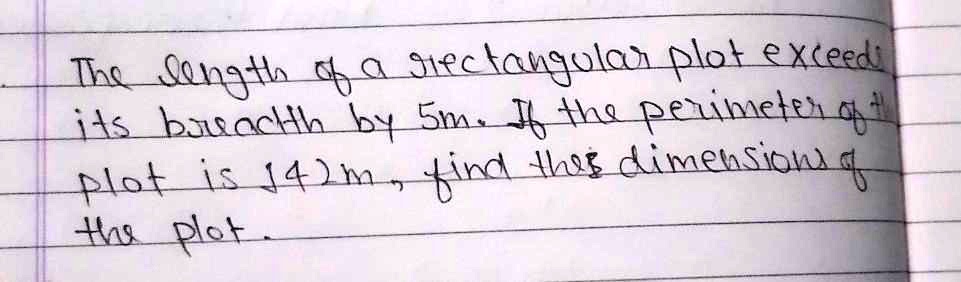 The length of a rectangular plot exceeds
its breacth by 5m. If the perimeter of the
plot is 142m, find the dimensions of
the plot.